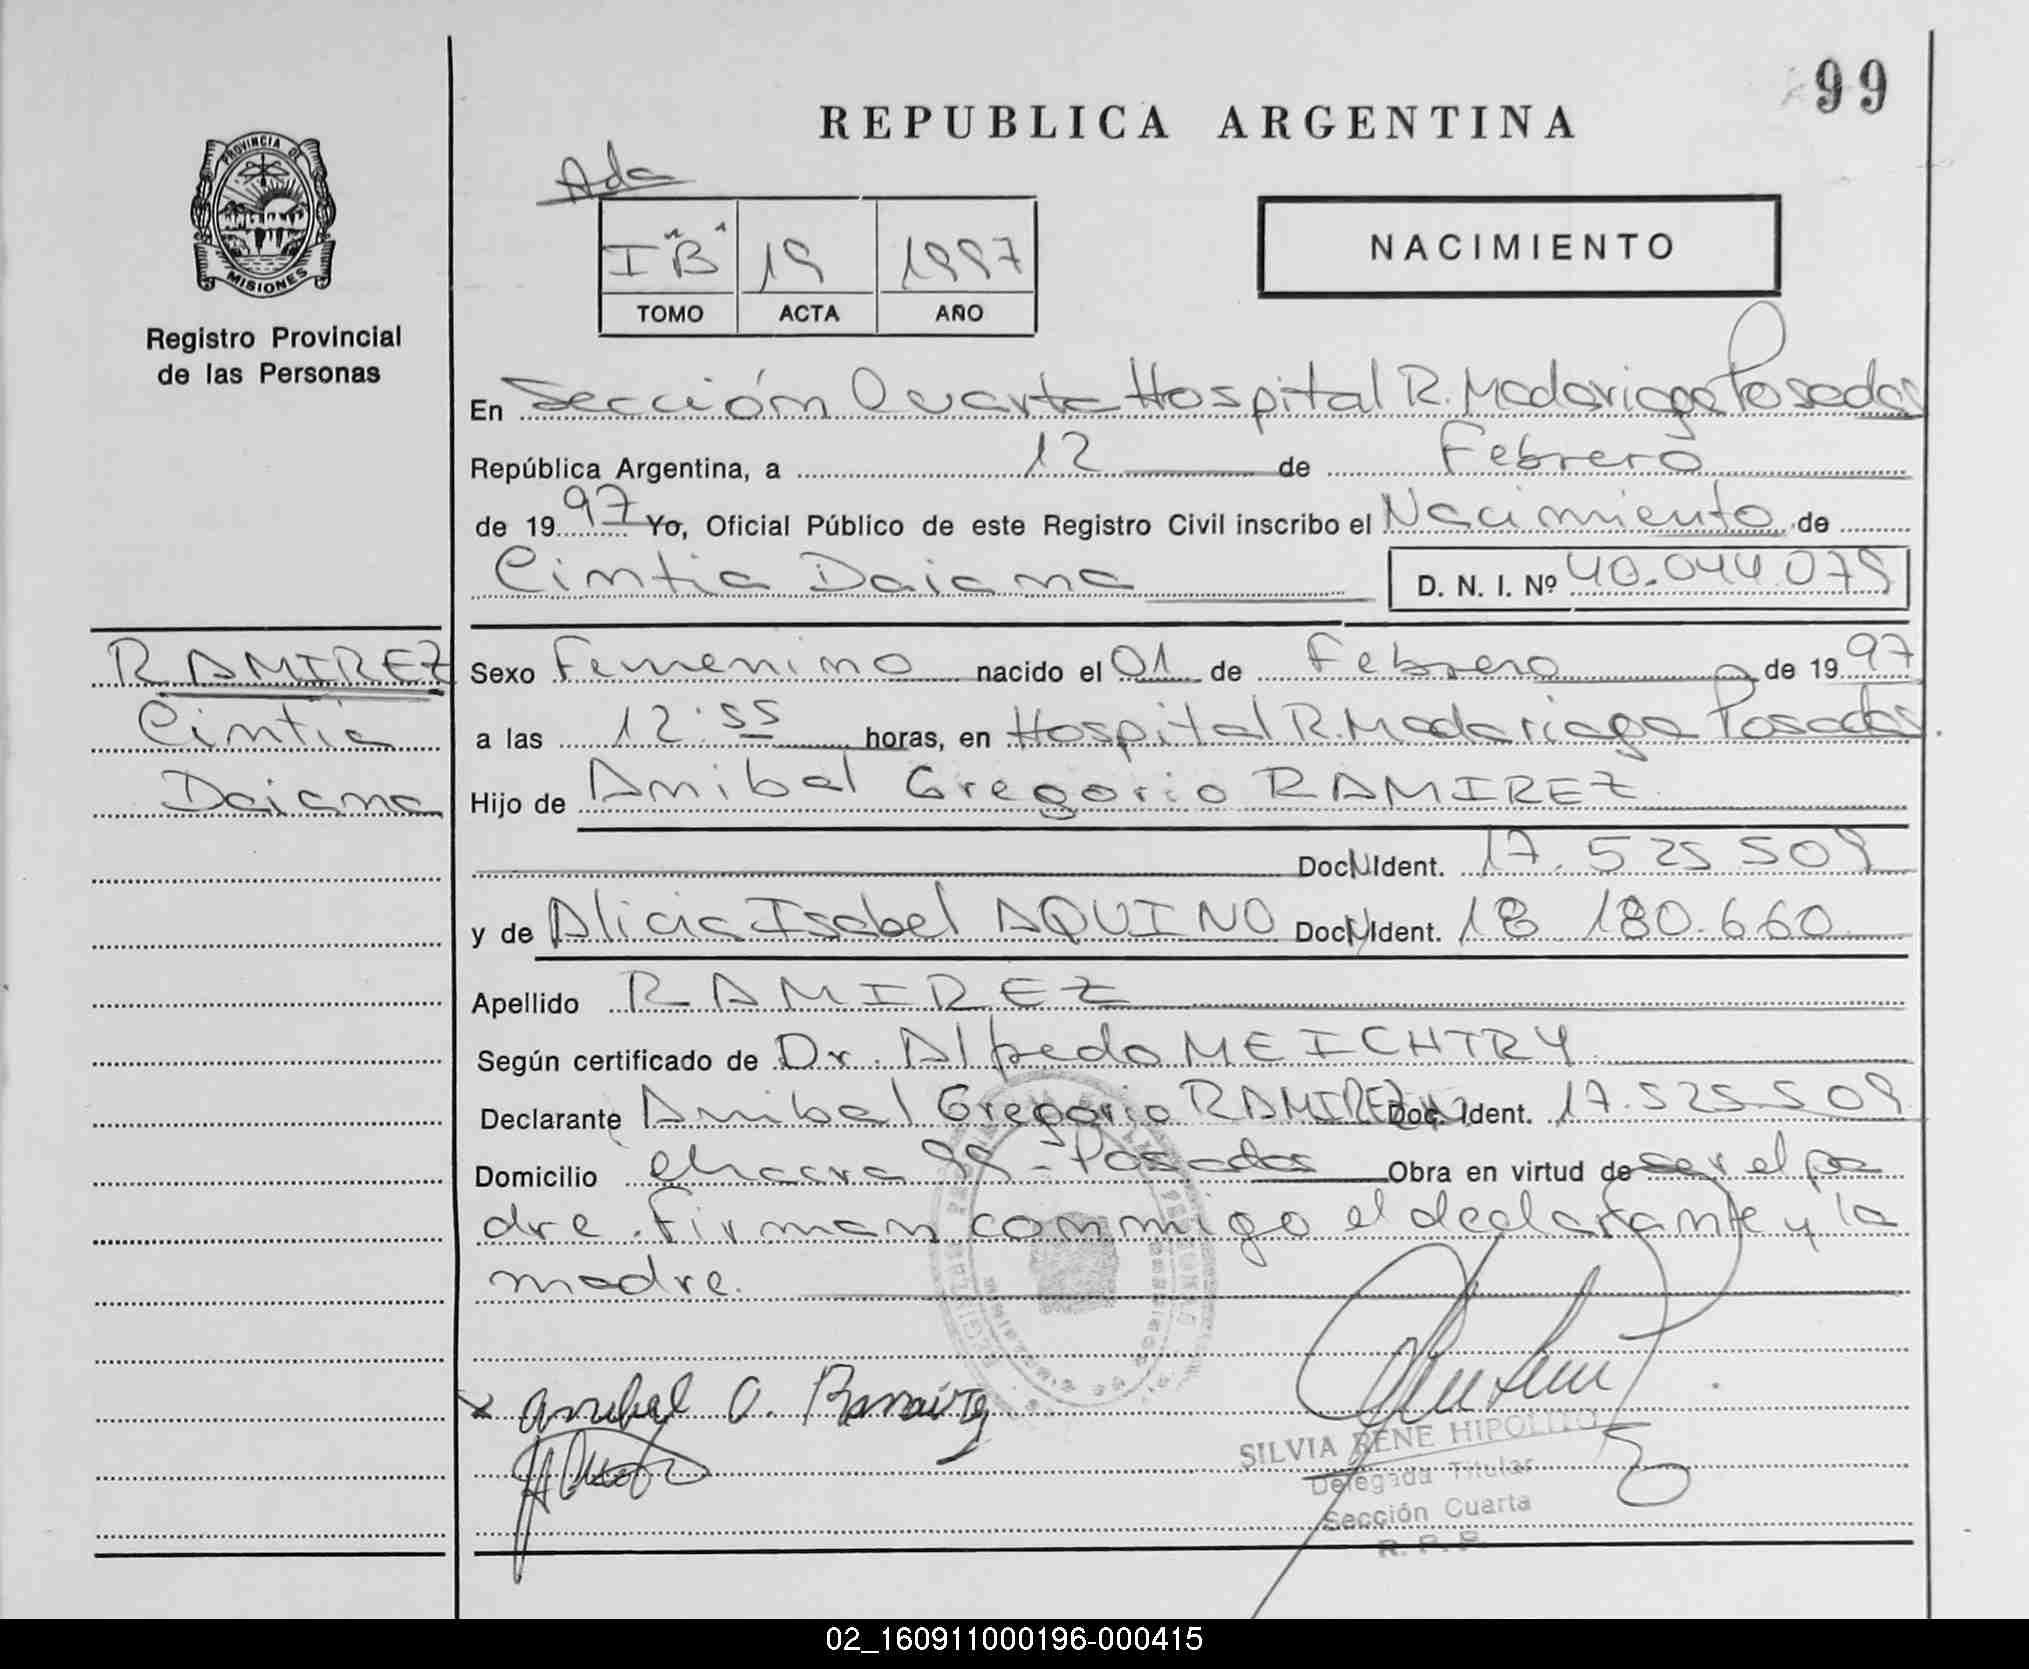 99
REPUBLICA ARGENTINA
PROVINCIA DE
MISIONES
Registro Provincial
de las Personas
Ada
I "B" 19 1997
TOMO ACTA AÑO
NACIMIENTO
En Sección Cuarta Hospital R. Madariaga Posadas
República Argentina, a 12 de Febrero
de 1997 Yo, Oficial Público de este Registro Civil inscribo el Nacimiento de
Cintia Daiana D. N. I. Nº 40.044.079
RAMIREZ
Cintia
Daiana
Sexo Femenino nacido el 01 de Febrero de 1997
a las 12:55 horas, en Hospital R. Madariaga Posadas.
Hijo de Anibal Gregorio RAMIREZ
Doc. N. Ident. 17.525.509
y de Alicia Isabel AQUINO Doc. N. Ident. 18 180.660
Apellido RAMIREZ
Según certificado de Dr. Alfredo MEICHTRY
Declarante Anibal Gregorio RAMIREZ Doc. Ident. 17.525.509
Domicilio chacra 99 - Posadas Obra en virtud de ser el pa
dre. Firman conmigo el declarante y la
madre.
Anibal G. Ramirez
SILVIA RENE HIPOLITO
Delegada Titular
Sección Cuarta
R. P. P.
02_160911000196-000415